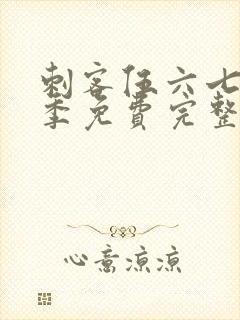 刺客伍六七
季免费完整
心意凉凉